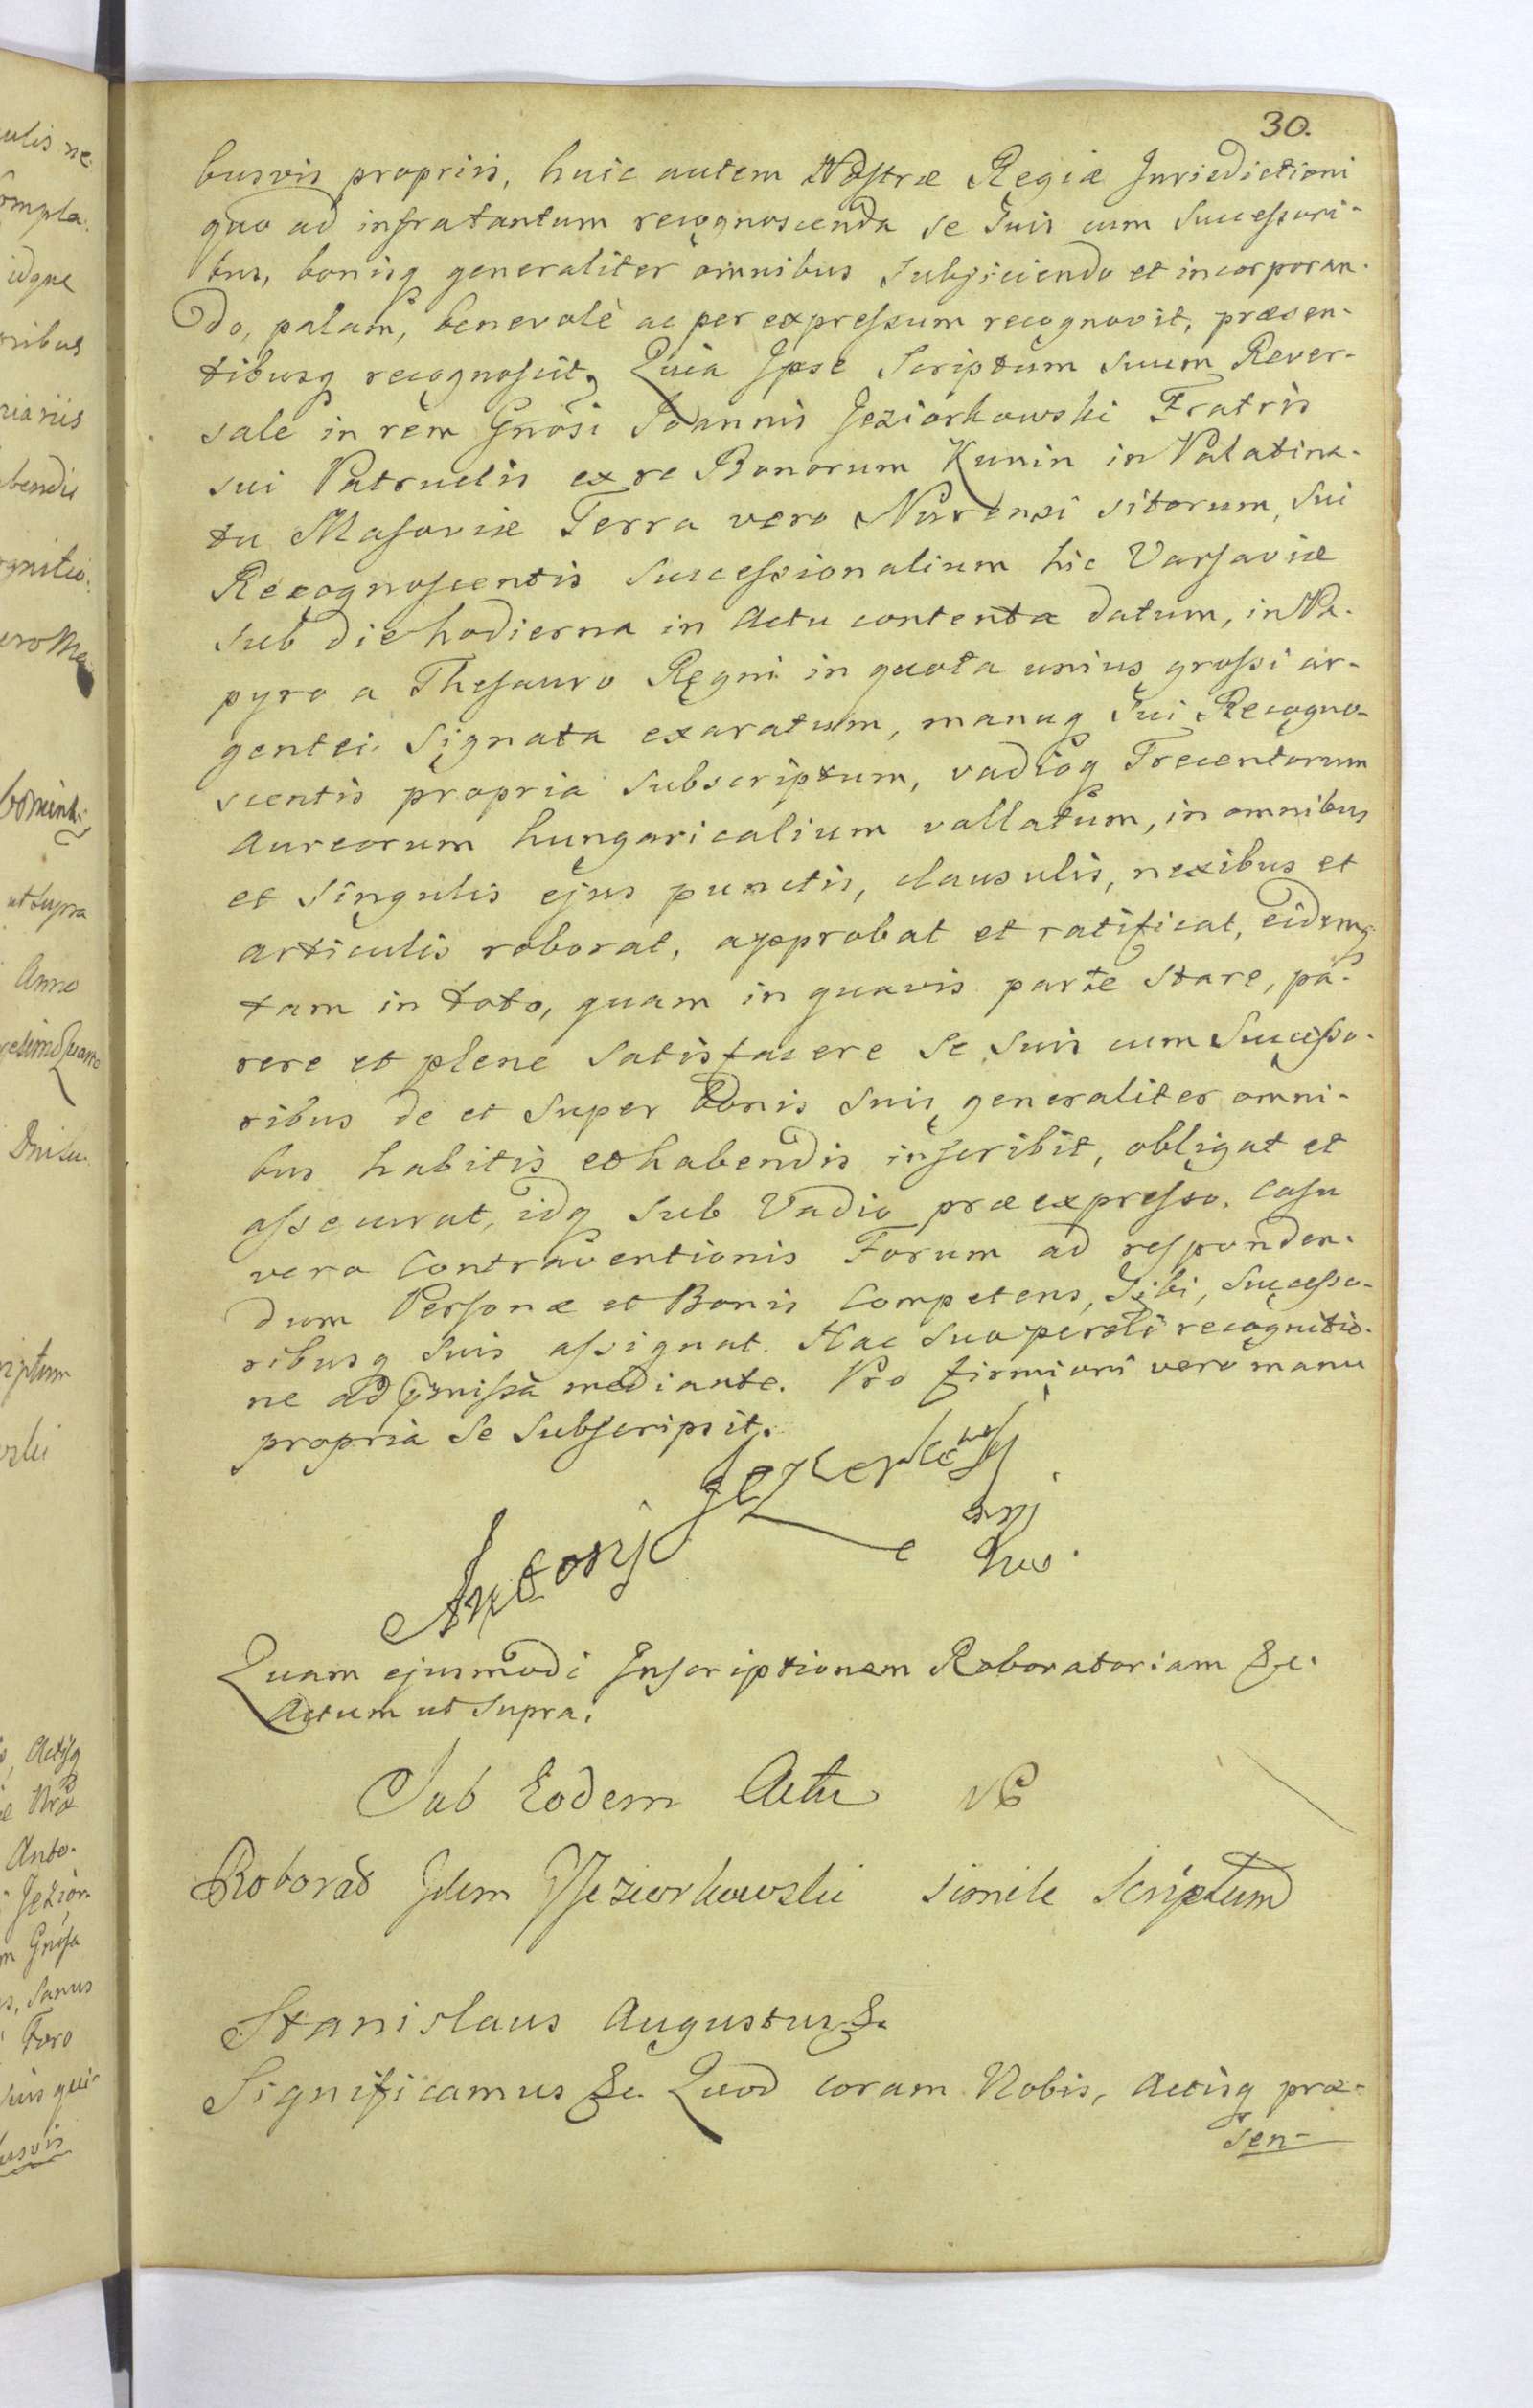 30.
busvis propriis, huic autem Nostræ Regiæ Jurisdictioni
quo ad infratantum recognoscenda se suis cum successori-
bus, bonisq generaliter omnibus subjiciendo et incorporan-
do, palam, benevolè ac per expressum recognovit, præsen-
tibusq recognoscit, Quia Ipse Scriptum suum Rever-
sale in rem Gnosi Joannis Jeziorkowski Fratris
sui Patruelis ex re Bonorum Kunin in Palatina-
tu Masoviæ Terra vero Nurensi sitorum, sui
Recognoscentis successionalium hic Varsaviæ
sub die hodierna in Actu contenta datum, in Pa-
pyro a Thesauro Regni in quota unius grossi ar-
gentei signata exaratum, manuq sui Recogno-
scentis propria subscriptum, vadioq Trecentorum
Aureorum hungaricalium vallatum, in omnibus
et singulis ejus punctis, clausulis, nexibus et
articulis roborat, approbat et ratificat, eidemq
tam in toto, quam in quavis parte stare, pa-
rere et plene satisfacere se suis cum successo-
ribus de et super bonis suis generaliter omni-
bus habitis et habendis inscribit, obligat et
assecurat, idq sub Vadio præexpresso. Casu
vero Contraventionis Forum ad responden-
dum Personæ et Bonis Competens, sibi, successo-
ribusq suis assignat. Hac sua persli recognitio-
ne ad pmissa mediante. Pro firmiori vero manu
propria se subscripsit.
Antonj
Quam ejusmodi Inscriptionem Roboratoriam &c.
Actum ut supra.
Sub Eodem Actu
Roborat Idem Jeziorkowski simile Scriptum
Stanislaus Augustus &.
Significamus &c. Quod coram Nobis, Actisq præ-
sen-